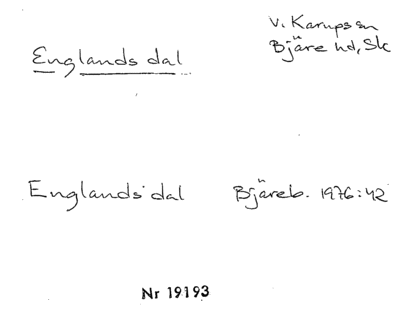 Englands dal
V. Karups sn
Bjäre hd, Sk
Englands dal Bjäreb. 1976:42
Nr 19193